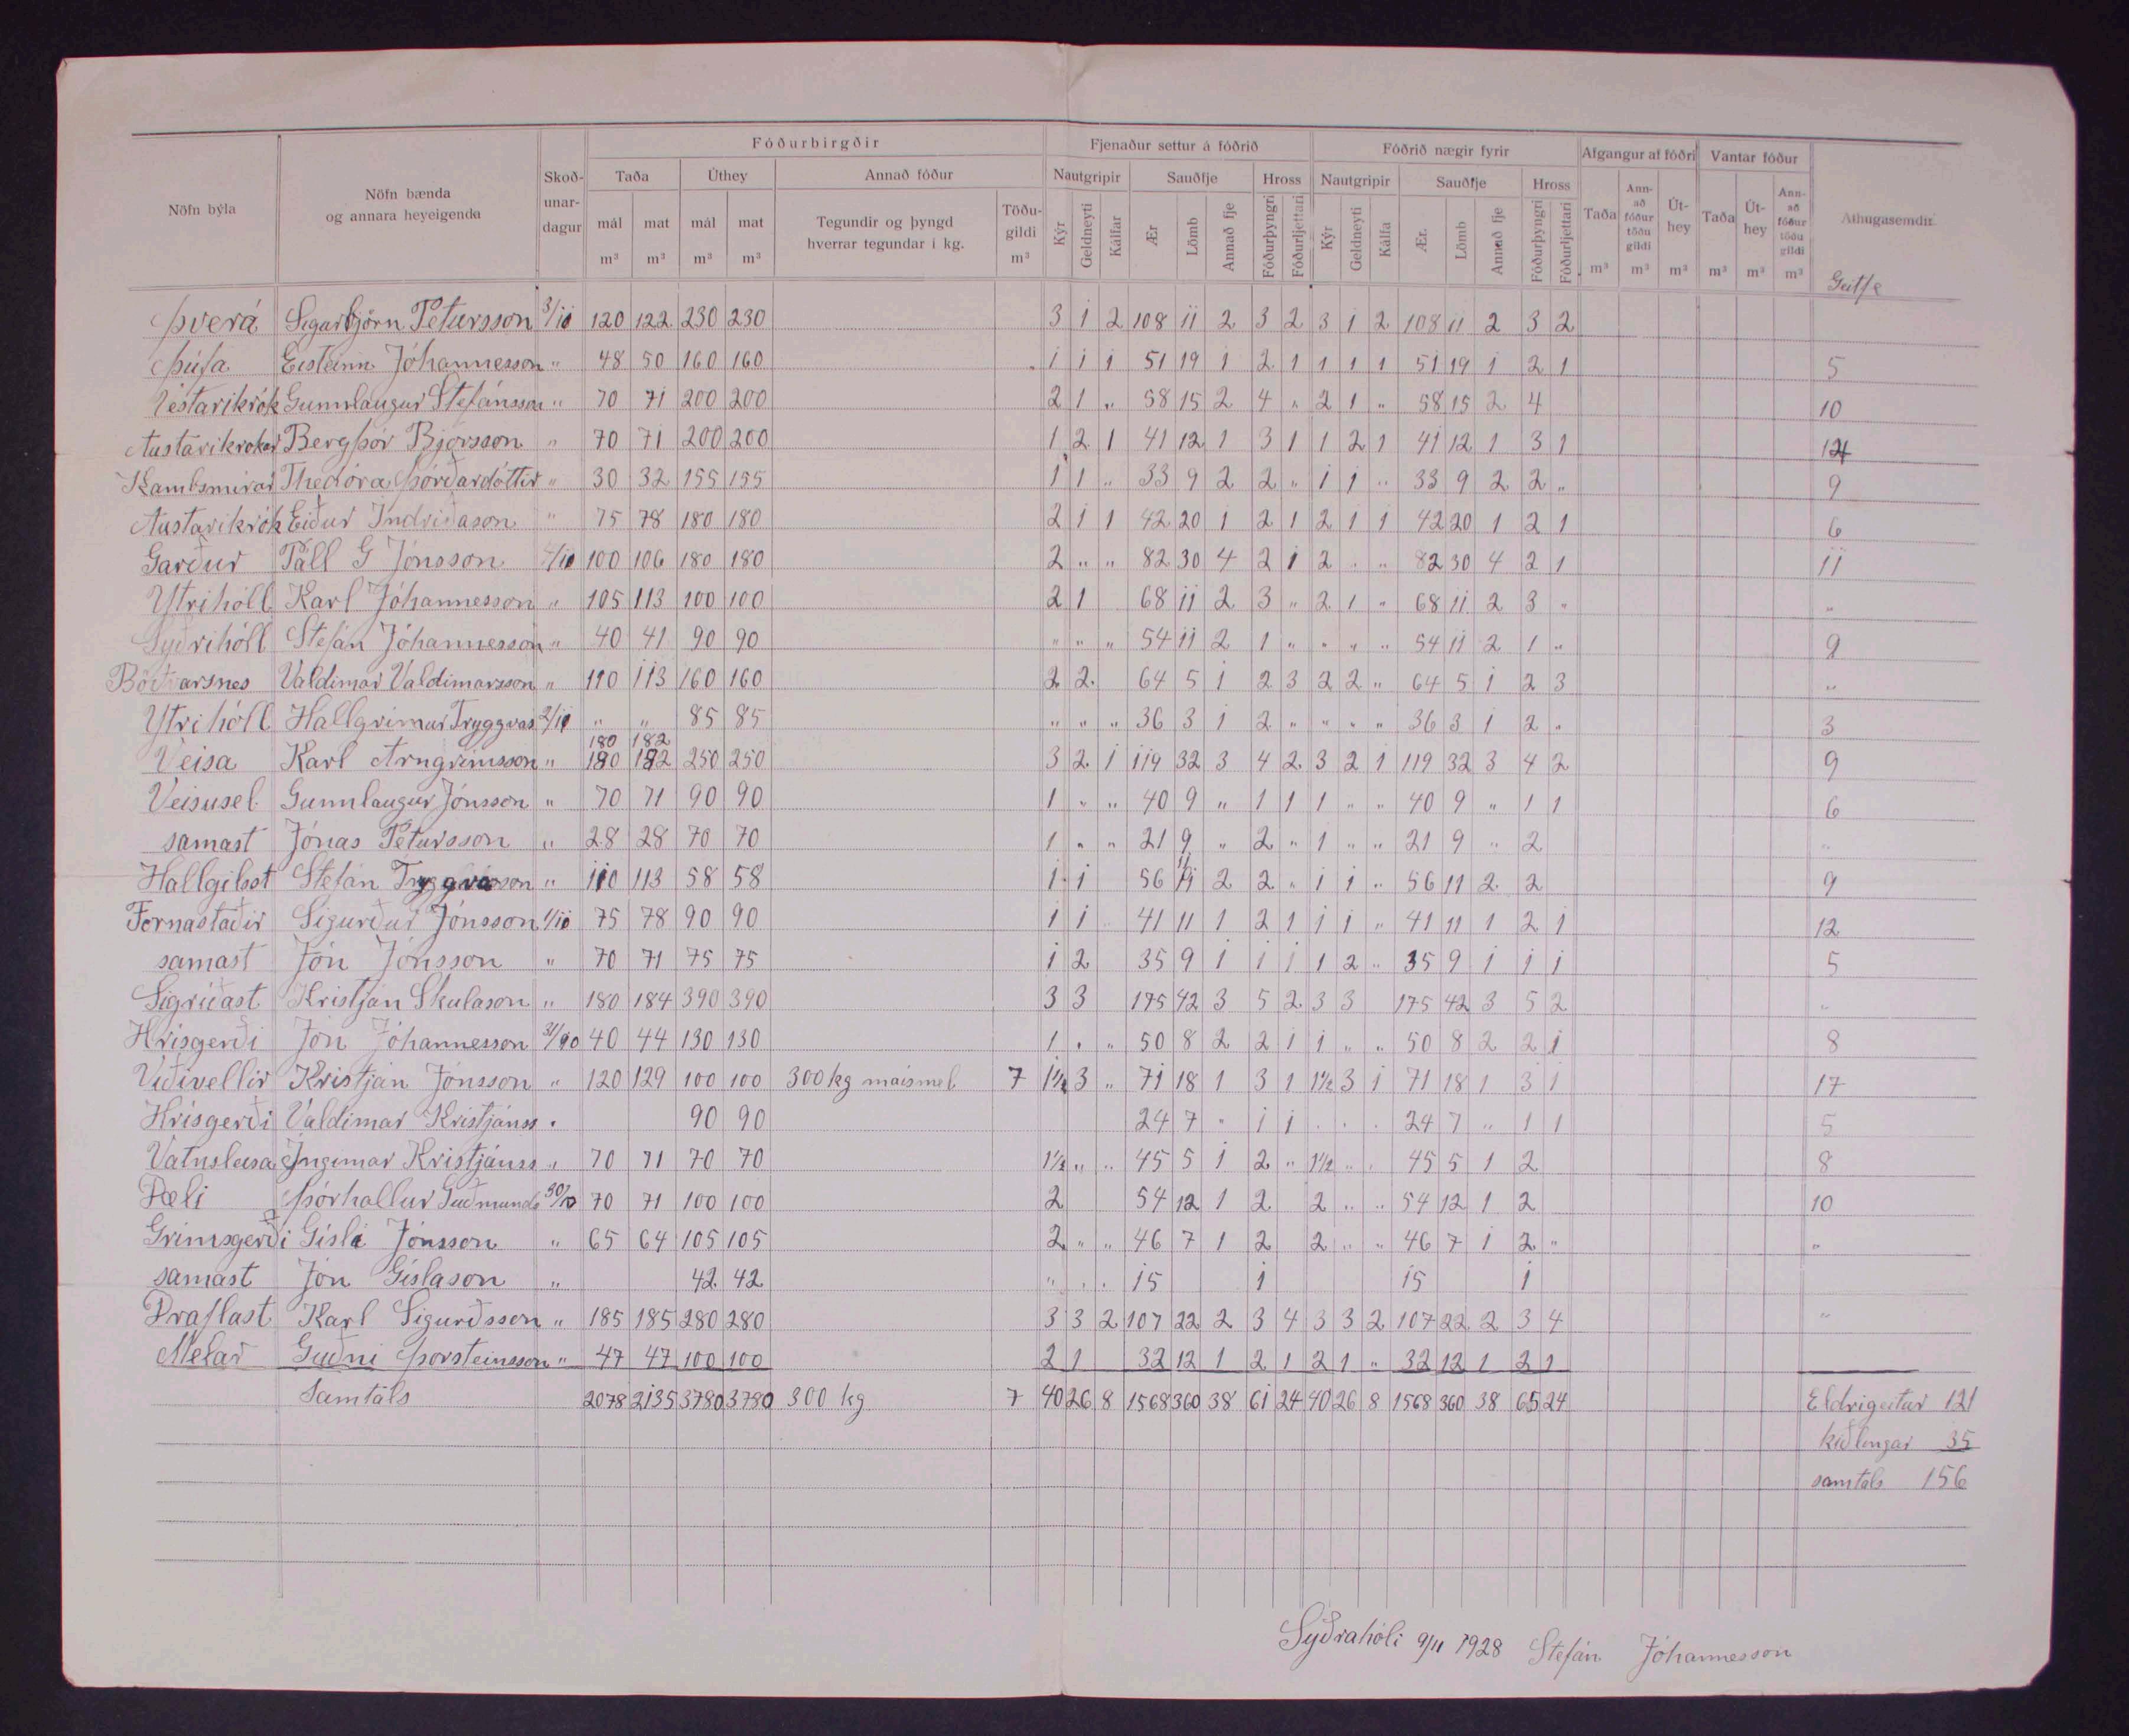 Fóðurbirgðir Fjenaður settur á fóðrið Fóðrið nægir fyrir Afgangur af fóðri Vantar fóður
Nöfn býla Nöfn bænda og annara heyeigenda Skoðunardagur Taða Úthey Annað fóður Nautgripir Sauðfje Hross Nautgripir Sauðfje Hross Taða Annað fóður töðu gildi Úthey Taða Úthey Annað fóður töðu gildi Athugasemdir
mál mat mál mat Tegundir og þyngd hverrar tegundar í kg. Töðugildi Kýr Geldneyti Kálfar Ær Lömb Annað fje Fóðurþyngri Fóðurljettari Kýr Geldneyti Kálfa Ær. Lömb Annað fje Fóðurþyngri Fóðurljettari
m³ m³ m³ m³ m³ m³ m³ m³ m³ m³ m³ Geitfe
Þverá Sigurbjörn Petursson 3/10 120 122 230 230 3 1 2 108 11 2 3 2 3 1 2 108 11 2 3 2
Þúfa Eisteinn Jóhannesson " 48 50 160 160 1 1 1 51 19 1 2 1 1 1 1 51 19 1 2 1 5
Vestarikrók Gunnlaugur Stefánsson " 70 71 200 200 2 1 " 58 15 2 4 " 2 1 " 58 15 2 4 10
Austarikrokar Bergþór Bjorsson " 70 71 200 200 1 2 1 41 12 1 3 1 1 2 1 41 12 1 3 1
Kambsmirar Thedóra Þórðardóttir " 30 32 155 155 1 1 " 33 9 2 2 " 1 1 " 33 9 2 2 " 9
Austarikrók Eiður Indriðason " 75 78 180 180 2 1 1 42 20 1 2 1 2 1 1 42 20 1 2 1 6
Garður Páll G Jónsson 4/10 100 106 180 180 2 " " 82 30 4 2 1 2 " " 82 30 4 2 1 11
Ytrihóll Karl Jóhannesson " 105 113 100 100 2 1 68 11 2 3 " 2 1 " 68 11 2 3 " "
Syðrihóll Stefán Jóhannesson " 40 41 90 90 " " " 54 11 2 1 " " " " 54 11 2 1 " 9
Böðvarsnes Valdimar Valdimarsson " 110 113 160 160 2 2 64 5 1 2 3 2 2 " 64 5 1 2 3 "
Ytrihóll Hallgrimur Tryggvas 2/10 " " 85 85 " " " 36 3 1 2 " " " " 36 3 1 2 " 3
180 182
Veisa Karl Arngrimsson " 180 182 250 250 3 2 1 119 32 3 4 2 3 2 1 119 32 3 4 2 9
Veisusel Gunnlaugur Jónsson " 70 71 90 90 1 " " 40 9 " 1 1 1 " " 40 9 " 1 1 6
samast Jónas Petursson " 28 28 70 70 1 " " 21 9 " 2 " 1 " " 21 9 " 2 "
Hallgilsst Stefán Tryggvason " 110 113 58 58 1 1 56 11 2 2 " 1 1 " 56 11 2 2 9
Fornastaðir Sigurður Jónsson 1/10 75 78 90 90 1 1 41 11 1 2 1 1 1 " 41 11 1 2 1 12
samast Jón Jónsson " 70 71 75 75 1 2 35 9 1 1 1 1 2 " 35 9 1 1 1 5
Sigriðast Kristján Skulason " 180 184 390 390 3 3 175 42 3 5 2 3 3 175 42 3 5 2 "
Hrisgerði Jón Jóhannesson 40 44 130 130 1 " " 50 8 2 2 1 1 " " 50 8 2 2 1 8
Viðivellir Kristján Jónsson " 120 129 100 100 300 kg maismel 7 1½ 3 " 71 18 1 3 1 1½ 3 1 71 18 1 3 1 17
Hrisgerði Valdimar Kristjánss " 90 90 24 7 " 1 1 " " " 24 7 " 1 1 5
Vatnsleisa Ingimar Kristjánss " 70 71 70 70 1½ " " 45 5 1 2 " 1½ " " 45 5 1 2 8
Dæli Þórhallur Guðmunds 30/10 70 71 100 100 2 54 12 1 2 2 " " 54 12 1 2 10
Grimsgerði Gisli Jónsson " 65 64 105 105 2 " " 46 7 1 2 2 " " 46 7 1 2 " "
samast Jón Gislason " 42 42 " " " 15 1 15 1
Draflast Karl Sigurðsson " 185 185 280 280 3 3 2 107 22 2 3 4 3 3 2 107 22 2 3 4 "
Melar Guðni Þorsteinsson " 47 47 100 100 2 1 32 12 1 2 1 2 1 " 32 12 1 2 1
Samtals 2078 2135 3780 3780 300 kg 7 40 26 8 1568 360 38 61 24 40 26 8 1568 360 38 65 24 Eldrigeitur 121
kiðlingar 35
samtals 156
Syðrahóli 9/11 1928 Stefán Jóhannesson